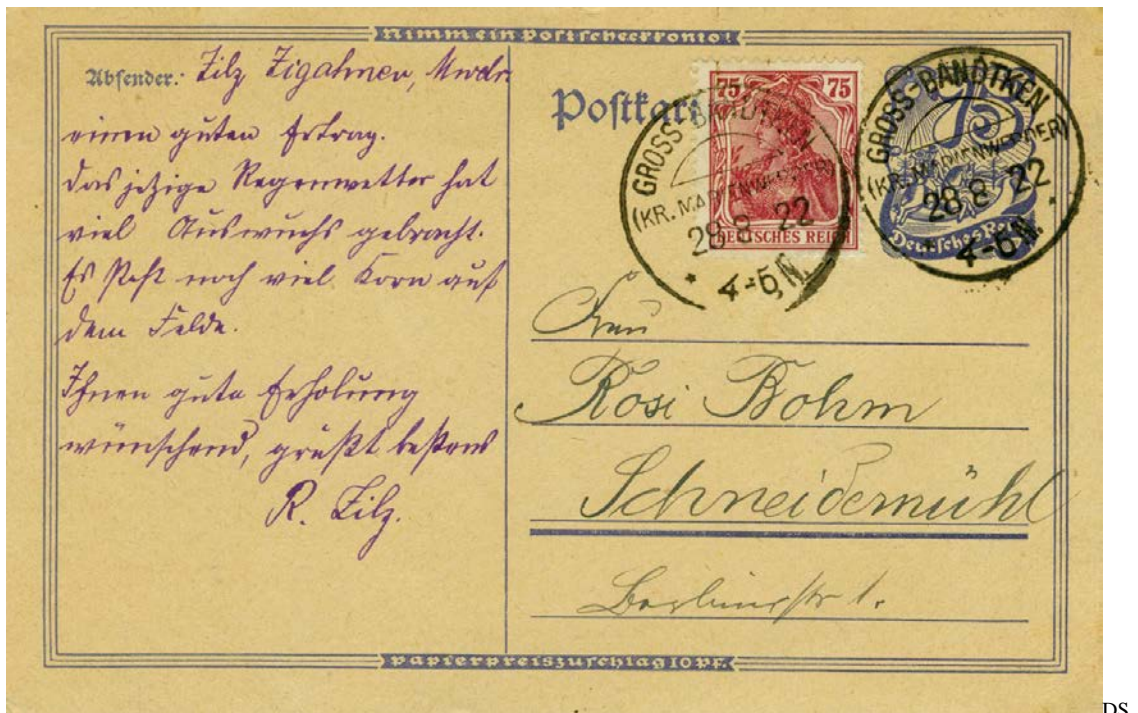 Nimm ein Postscheckkonto!
Absender: Zilz Zigahnen, Mwdr.
einen guten Ertrag.
Das jetzige Regenwetter hat
viel Auswuchs gebracht.
Es steht noch viel Korn auf
dem Felde.
Ihnen gute Erholung
wünschend, grüßt bestens
R. Zilz.
Postkar
75 75
DEUTSCHES REICH
GROSS-BANDTKEN
(KR. MARIENWERDER)
28.8 22
* 4-5 N.
75
Deutsches Rei
GROSS-BANDTKEN
(KR. MARIENWERDER)
28.8 22
* 4-5 N. *
Frau
Rosi Bohm
Schneidemühl
Berlinerstr 1.
Papierpreiszuschlag 10 Pf.
DS